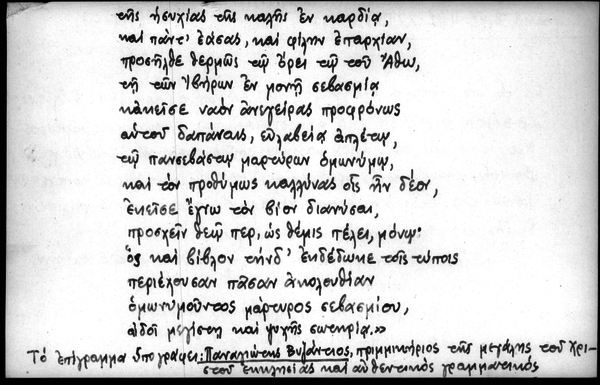 τῆς ἡσυχίας τῆς καλῆς ἐν καρδίᾳ,
καὶ πάντ' ἐάσας, καὶ φίλην ἐπαρχίαν,
προσῆλθε θερμῶς τῷ ὄρει τῷ τοῦ Ἄθω,
τῇ τῶν Ἰβήρων ἐν μονῇ σεβασμίᾳ
κἀκεῖσε ναὸν ἀνεγείρας προφρόνως
αὑτοῦ δαπάναις, εὐλαβείᾳ ἀπλέτῳ,
τῷ πανσεβάστῳ μαρτύρων ὁμωνύμῳ,
καὶ τὸν προθύμως καλλύνας οἷς ἦν δέον,
ἐκεῖσε ἔγνω τὸν βίον διανύσαι,
προσχεῖν θεῷ περ, ὡς θέμις πέλει, μόνῳ·
ὃς καὶ βίβλον τήνδ' ἐκδέδωκε τοῖς τύποις
περιέχουσαν πᾶσαν ἀκολουθίαν
ὁμωνυμοῦντος μάρτυρος σεβασμίου,
αἰδοῖ μεγίστῃ καὶ ψυχῆς σωτηρίᾳ.»
Τὸ ἐπίγραμμα ὑπογράφει: Παναγιώτης Βυζάντιος, πριμμικήριος τῆς μεγάλης τοῦ Χρι-
στοῦ ἐκκλησίας καὶ αὐθεντικὸς γραμματικός